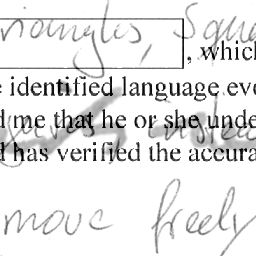 riangles, Squa
, whic
identified language eve
d me that he or she unde
gures, instea
d has verified the accura
move freely